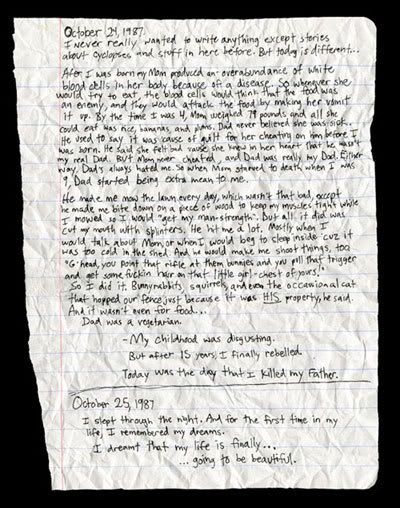 October 24, 1987
I never really wanted to write anything except stories
about cyclopses and stuff in here before. But today is different...
After I was born my Mom produced an overabundance of white
blood cells in her body because of a disease. So whenever she
would try to eat, the blood cells would think that the food was
an enemy, and they would attack the food by making her vomit
it up. By the time I was 4, Mom weighed 79 pounds and all she
could eat was rice, bananas, and plums. Dad never believed she was sick.
He used to say it was cause of guilt for her cheating on him before I
was born. He said she felt bad cause she knew in her heart that he wasn't
my real Dad. But Mom never cheated, and Dad was really my Dad. Either
way, Dad's always hated me. So when Mom starved to death when I was
9, Dad started being extra mean to me.
He made me mow the lawn every day, which wasn't that bad, except
he made me bite down on a piece of wood to keep my muscles tight while
I mowed so I would "get my man-strength". But all it did was
cut my mouth with splinters. He hit me a lot. Mostly when I
would talk about Mom or when I would beg to sleep inside cuz it
was too cold in the shed. And he would make me shoot things, too.
"G'head, you point that rifle at them bunnies and you pull that trigger
and get some fuckin hair on that little girl-chest of yours!"
So I did it. Bunnyrabbits, squirrels, and even the occasional cat
that hopped our fence just because it was HIS property, he said.
And it wasn't even for food...
Dad was a vegetarian.
- My childhood was disgusting.
But after 15 years, I finally rebelled.
Today was the day that I killed my Father.
October 25, 1987
I slept through the night. And for the first time in my
life, I remembered my dreams.
I dreamt that my life is finally...
...going to be beautiful.